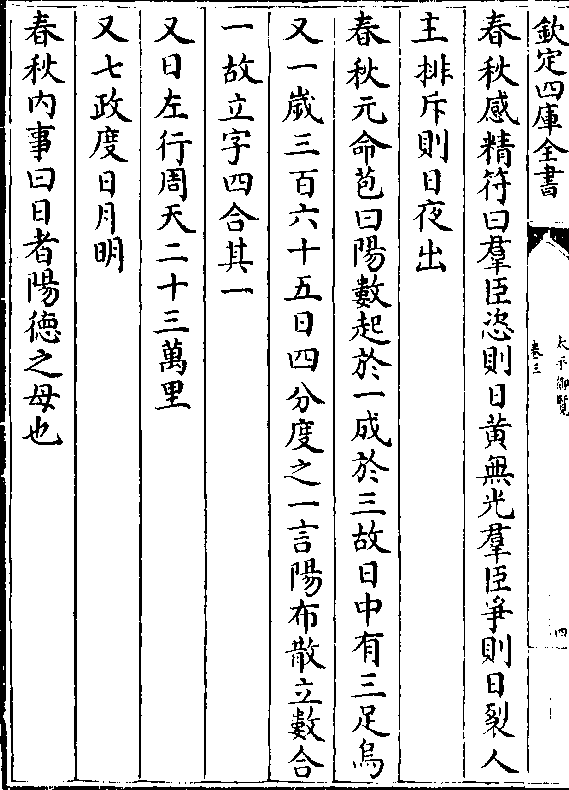 欽定四庫全書
太平御覽
卷三
四
春秋感精符曰羣臣恣則日黄無光羣臣爭則日裂人
主排斥則日夜出
春秋元命苞曰陽數起於一成於三故日中有三足烏
又一歲三百六十五日四分度之一言陽布散立數合
一故立字四合其一
又日左行周天二十三萬里
又七政度日月明
春秋内事曰日者陽徳之母也